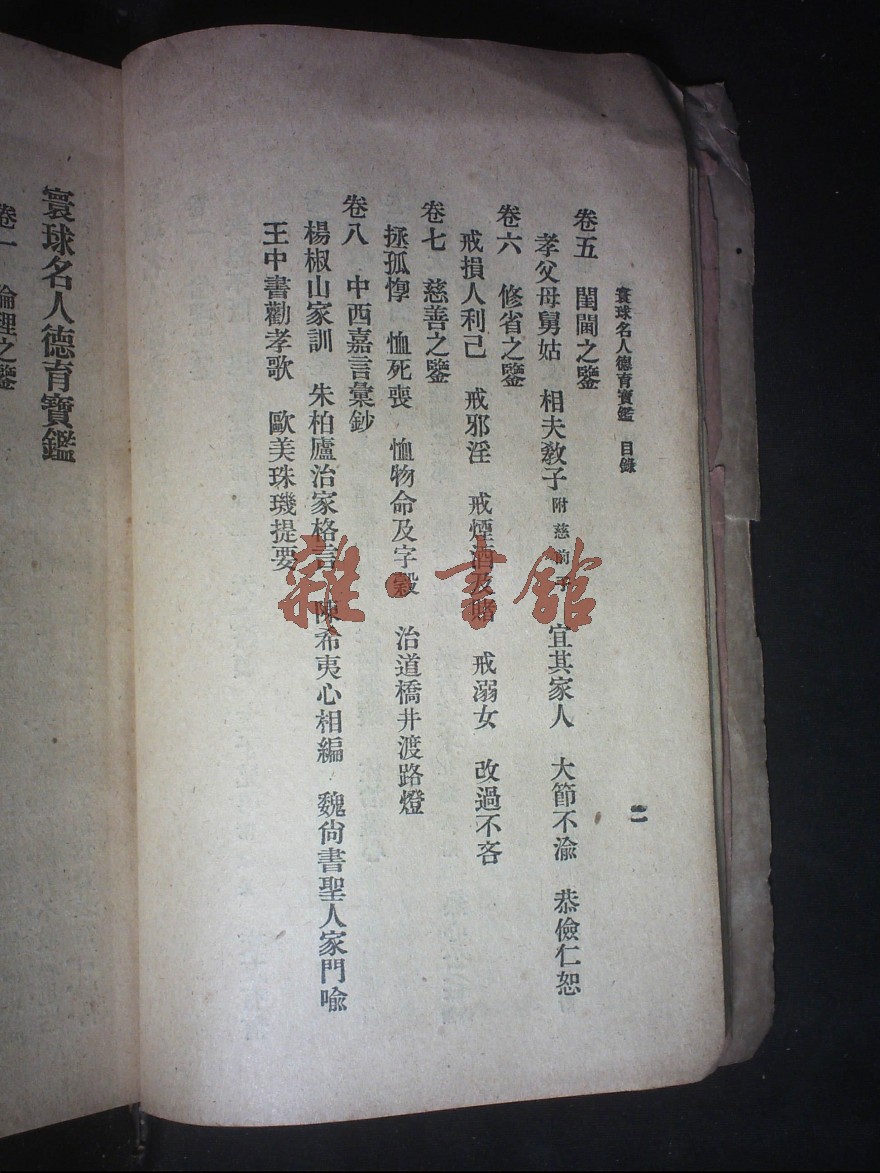 寰球名人德育寶鑑　目錄
二
卷五　閨閫之鑒
孝父母舅姑　相夫教子　附慈前子　宜其家人　大節不渝　恭儉仁恕
卷六　修省之鑒
戒損人利己　戒邪淫　戒煙酒及賭　戒溺女　改過不吝
卷七　慈善之鑒
拯孤惸　恤死喪　恤物命及字穀　治道橋井渡路燈
卷八　中西嘉言彙鈔
楊椒山家訓　朱柏廬治家格言　陳希夷心相編　魏尙書聖人家門喩
王中書勸孝歌　歐美珠璣提要
寰球名人德育寶鑑
卷一　倫理之鑒
雜·書館